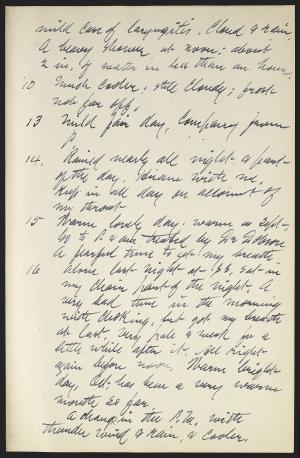 mild case of laryngitis. Cloud & rain,
A heavy shower at noon; about
2 in. of water in less than an hour.
10 Much cooler; still cloudy; frost
not far off.
13 Mild fair day, Company from
P.
14, Rained nearly all night & part
of the day. wrote me.
Keep in all day on account of
my throat
15 Warm lovely day. warm as Sept-
Go to P. & am treated by Dr
A fearful time to get my breath
16 Alone last night at Sat in
my chair part of the night. A
very bad time in the morning
with choking, but got my breath
at last, Very pale & weak for a
little while after it. All right
again before noon. Warm bright
day, Oct. has been a very warm
month so far.
A change in the P.M. with
thunder wind & rain, & cooler.